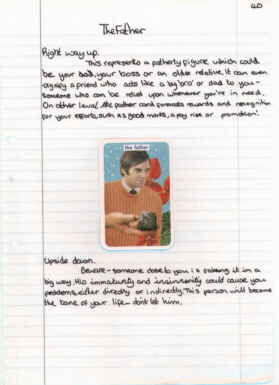 40
The Father
Right way up.
This represents a fatherly figure which could
be your dad, your boss or an older relative. It can even
signify a friend who acts like a big 'bro' or dad to you -
someone who can be relied upon whenever you're in need.
On other level the father card forecasts rewards and recognition
for your efforts, such as good marks, a pay rise or promotion.
the father
Upside down.
Beware - someone close to you is it in a
big way. His immaturity and insincerity could cause you
problems, either directly or indirectly. This person will become
the bane of your life - dont let him.